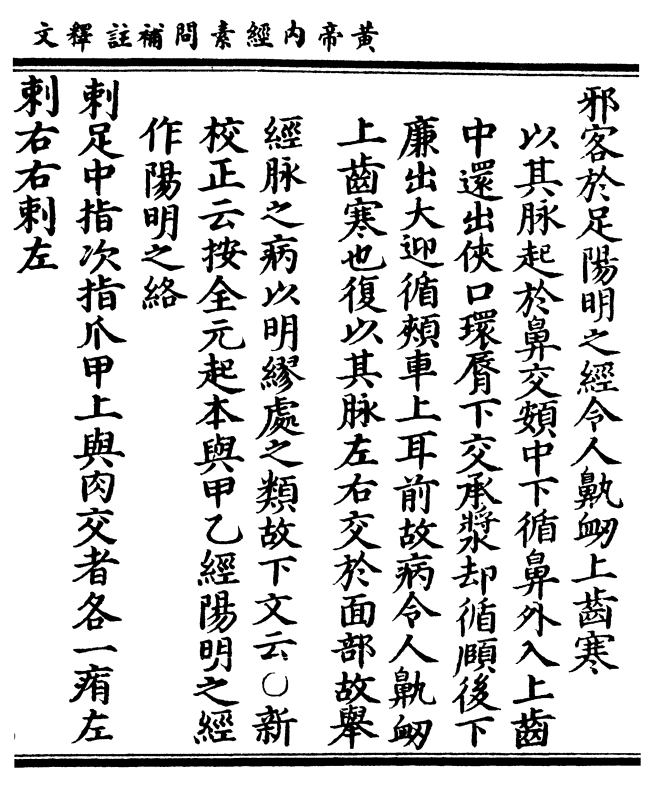 黃帝內經素問補註釋文
邪客於足陽明之經令人鼽衂上齒寒
以其脉起於鼻交頞中下循鼻外入上齒
中還出俠口環脣下交承漿却循頤後下
廉出大迎循頰車上耳前故病令人鼽衂
上齒寒也復以其脉左右交於面部故舉
經脉之病以明繆處之類故下文云〇新
校正云按全元起本與甲乙經陽明之經
作陽明之絡
刺足中指次指爪甲上與肉交者各一痏左
刺右右刺左